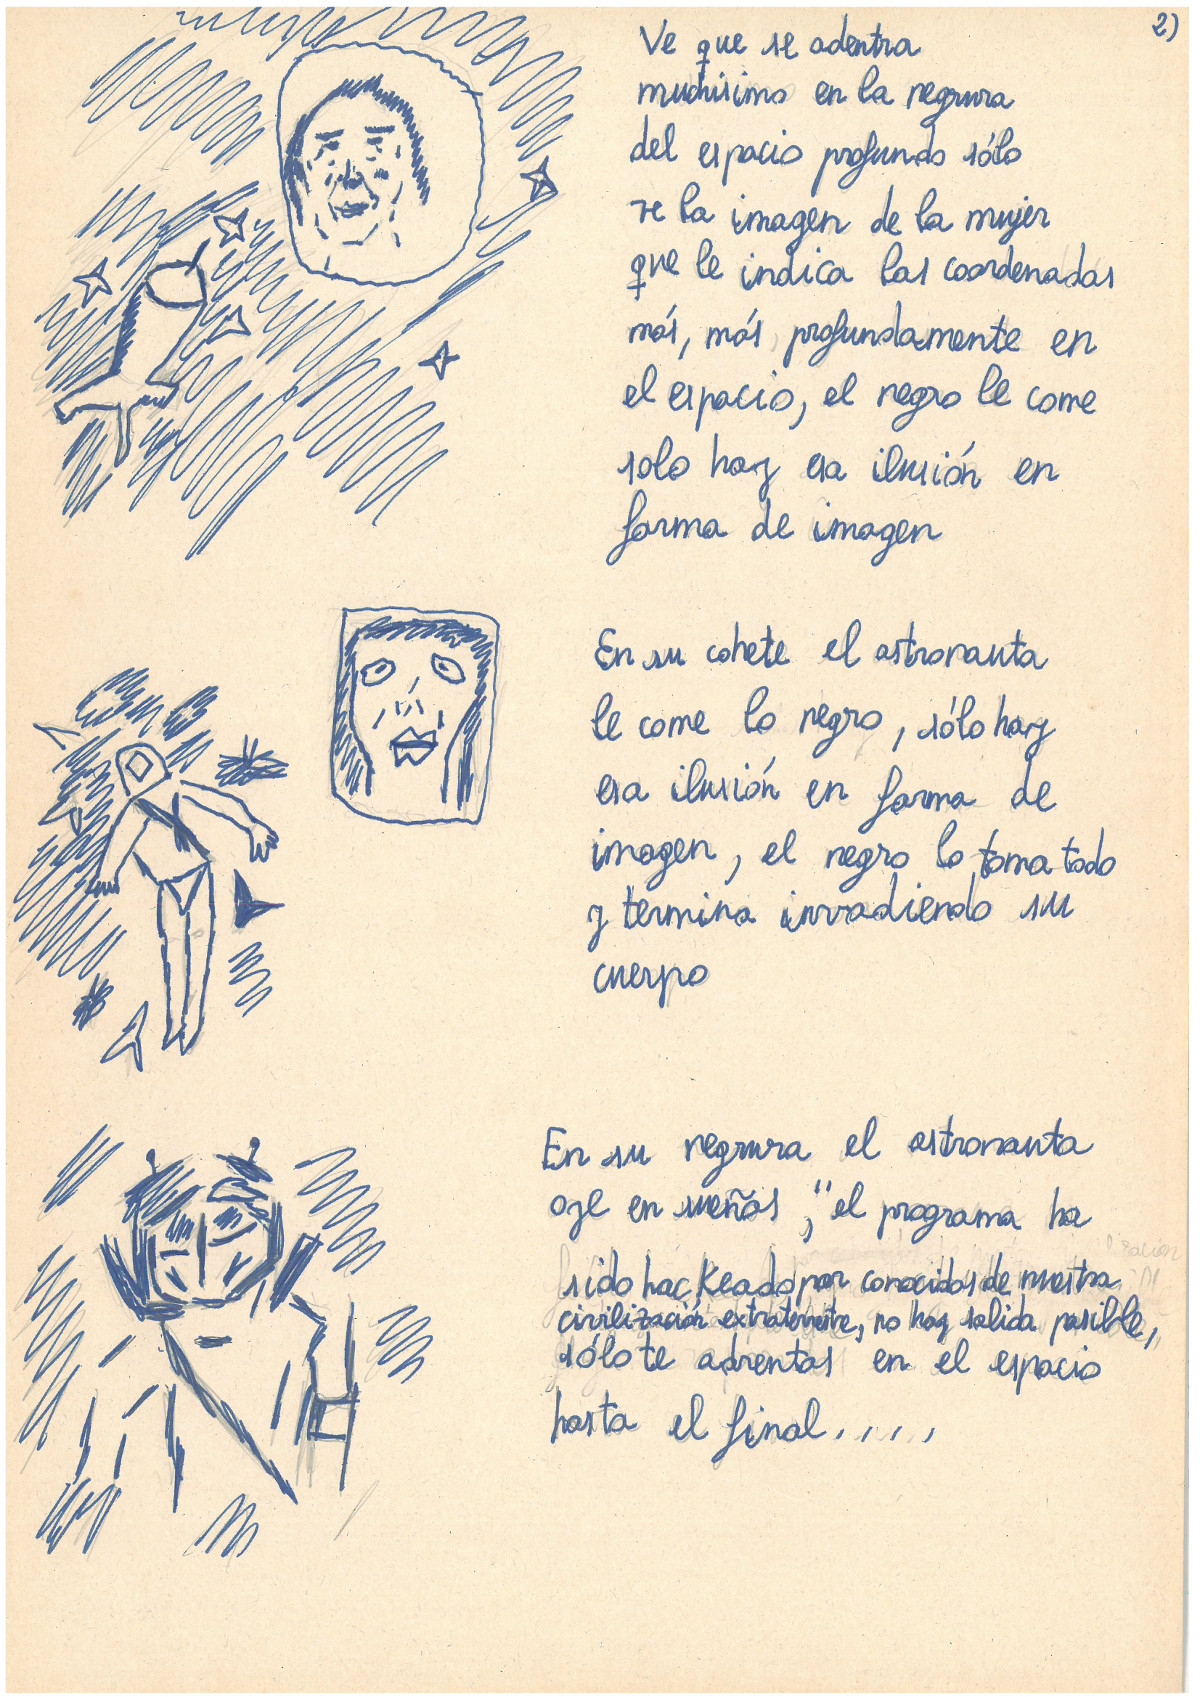 2)
Ve que se adentra
muchísimo en la negrura
del espacio profundo sólo
ve la imagen de la mujer
que le indica las coordenadas
más, más, profundamente en
el espacio, el negro le come
solo hay esa ilusión en
forma de imagen
En su cohete el astronauta
le come lo negro, sólo hay
esa ilusión en forma de
imagen, el negro lo toma todo
y termina irradiendo su
cuerpo
En su negrura el astronauta
oye en sueños, "el programa ha
sido hackeado por conocidos de nuestra
civilización extraterrestre, no hay salida posible,
sólo te adrentas en el espacio
hasta el final.,,,,